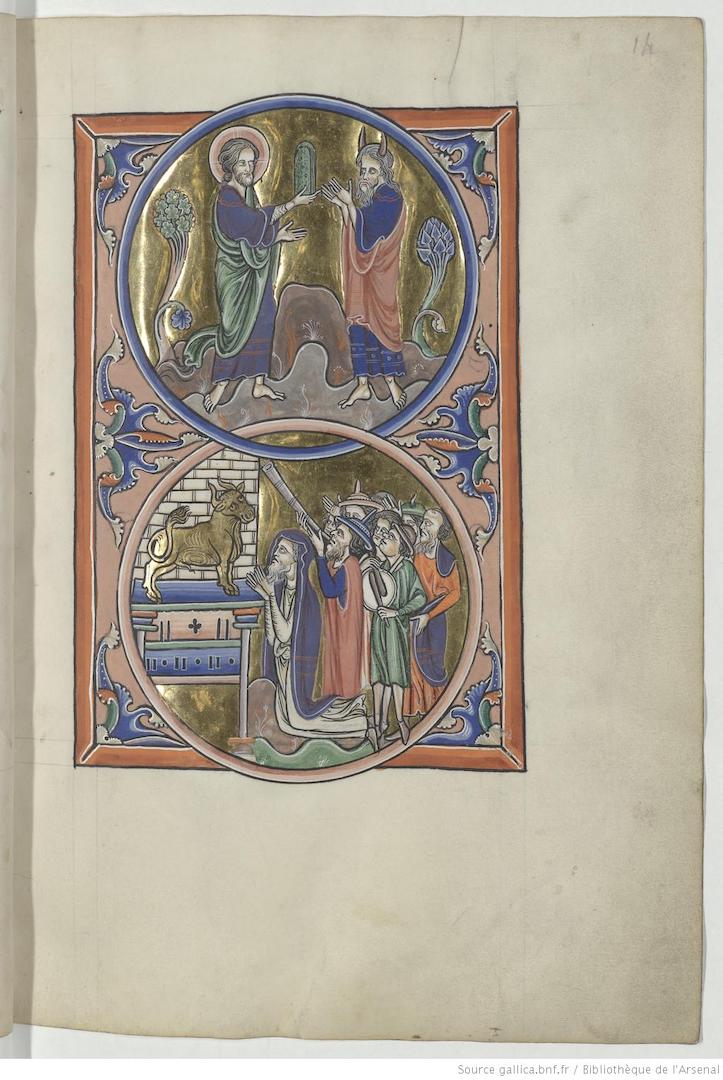 14
Source gallica.bnf.fr / Bibliothèque de l'Arsenal